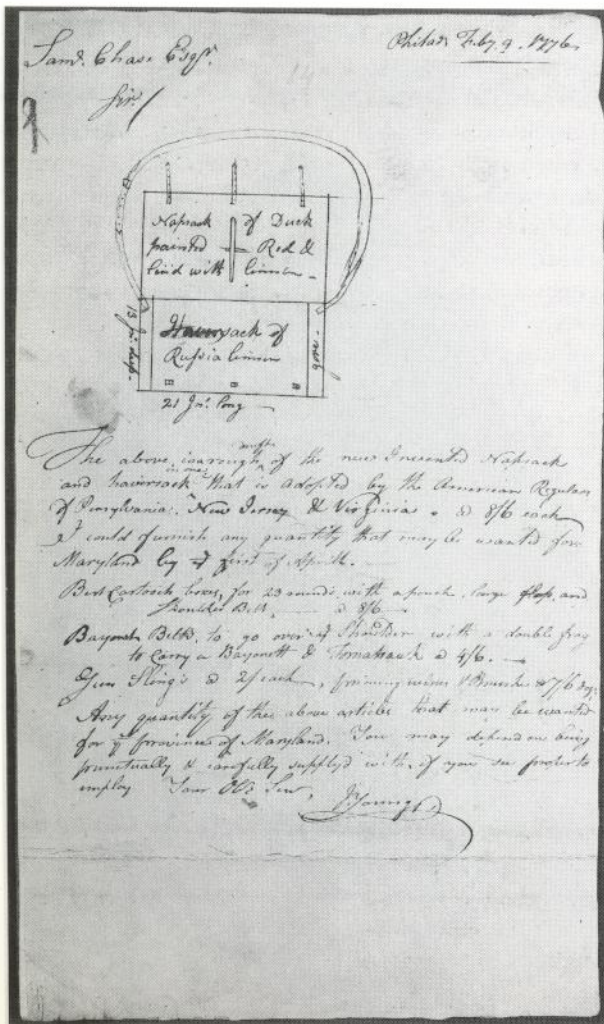 Saml. Chase Esqr.
Philada Feby. 9. 1776
Sir /
Napsack of Duck
painted Red &
lin'd with linnen
Haversack of
Russia linnen
deep
gore
21 Ins. long
The above is a rough of the new Invented Napsack
in one
and haversack that is adopted by the American Regulars
of Pensylvania. New Jersey & Virginia a 8/6 each
I could furnish any quantity that may be wanted for
Maryland by ye first of Aprill.
Best Cartooch boxes, for 23 rounds with a pouch, large flap and
Shoulder Belt, a 8/6
Bayonet Belts, to go over ye Shoulder with a double frog
to Carry a Bayonett & Tomahawk a 4/6.
Gun Sling's a 2/ each, priming wires & Brushes a 7/6
Any quantity of the above articles that may be wanted
for ye province of Maryland. You may depend on being
punctually & carefully supply'd with, if you see proper to
employ Your Obt Ser,
JYoung